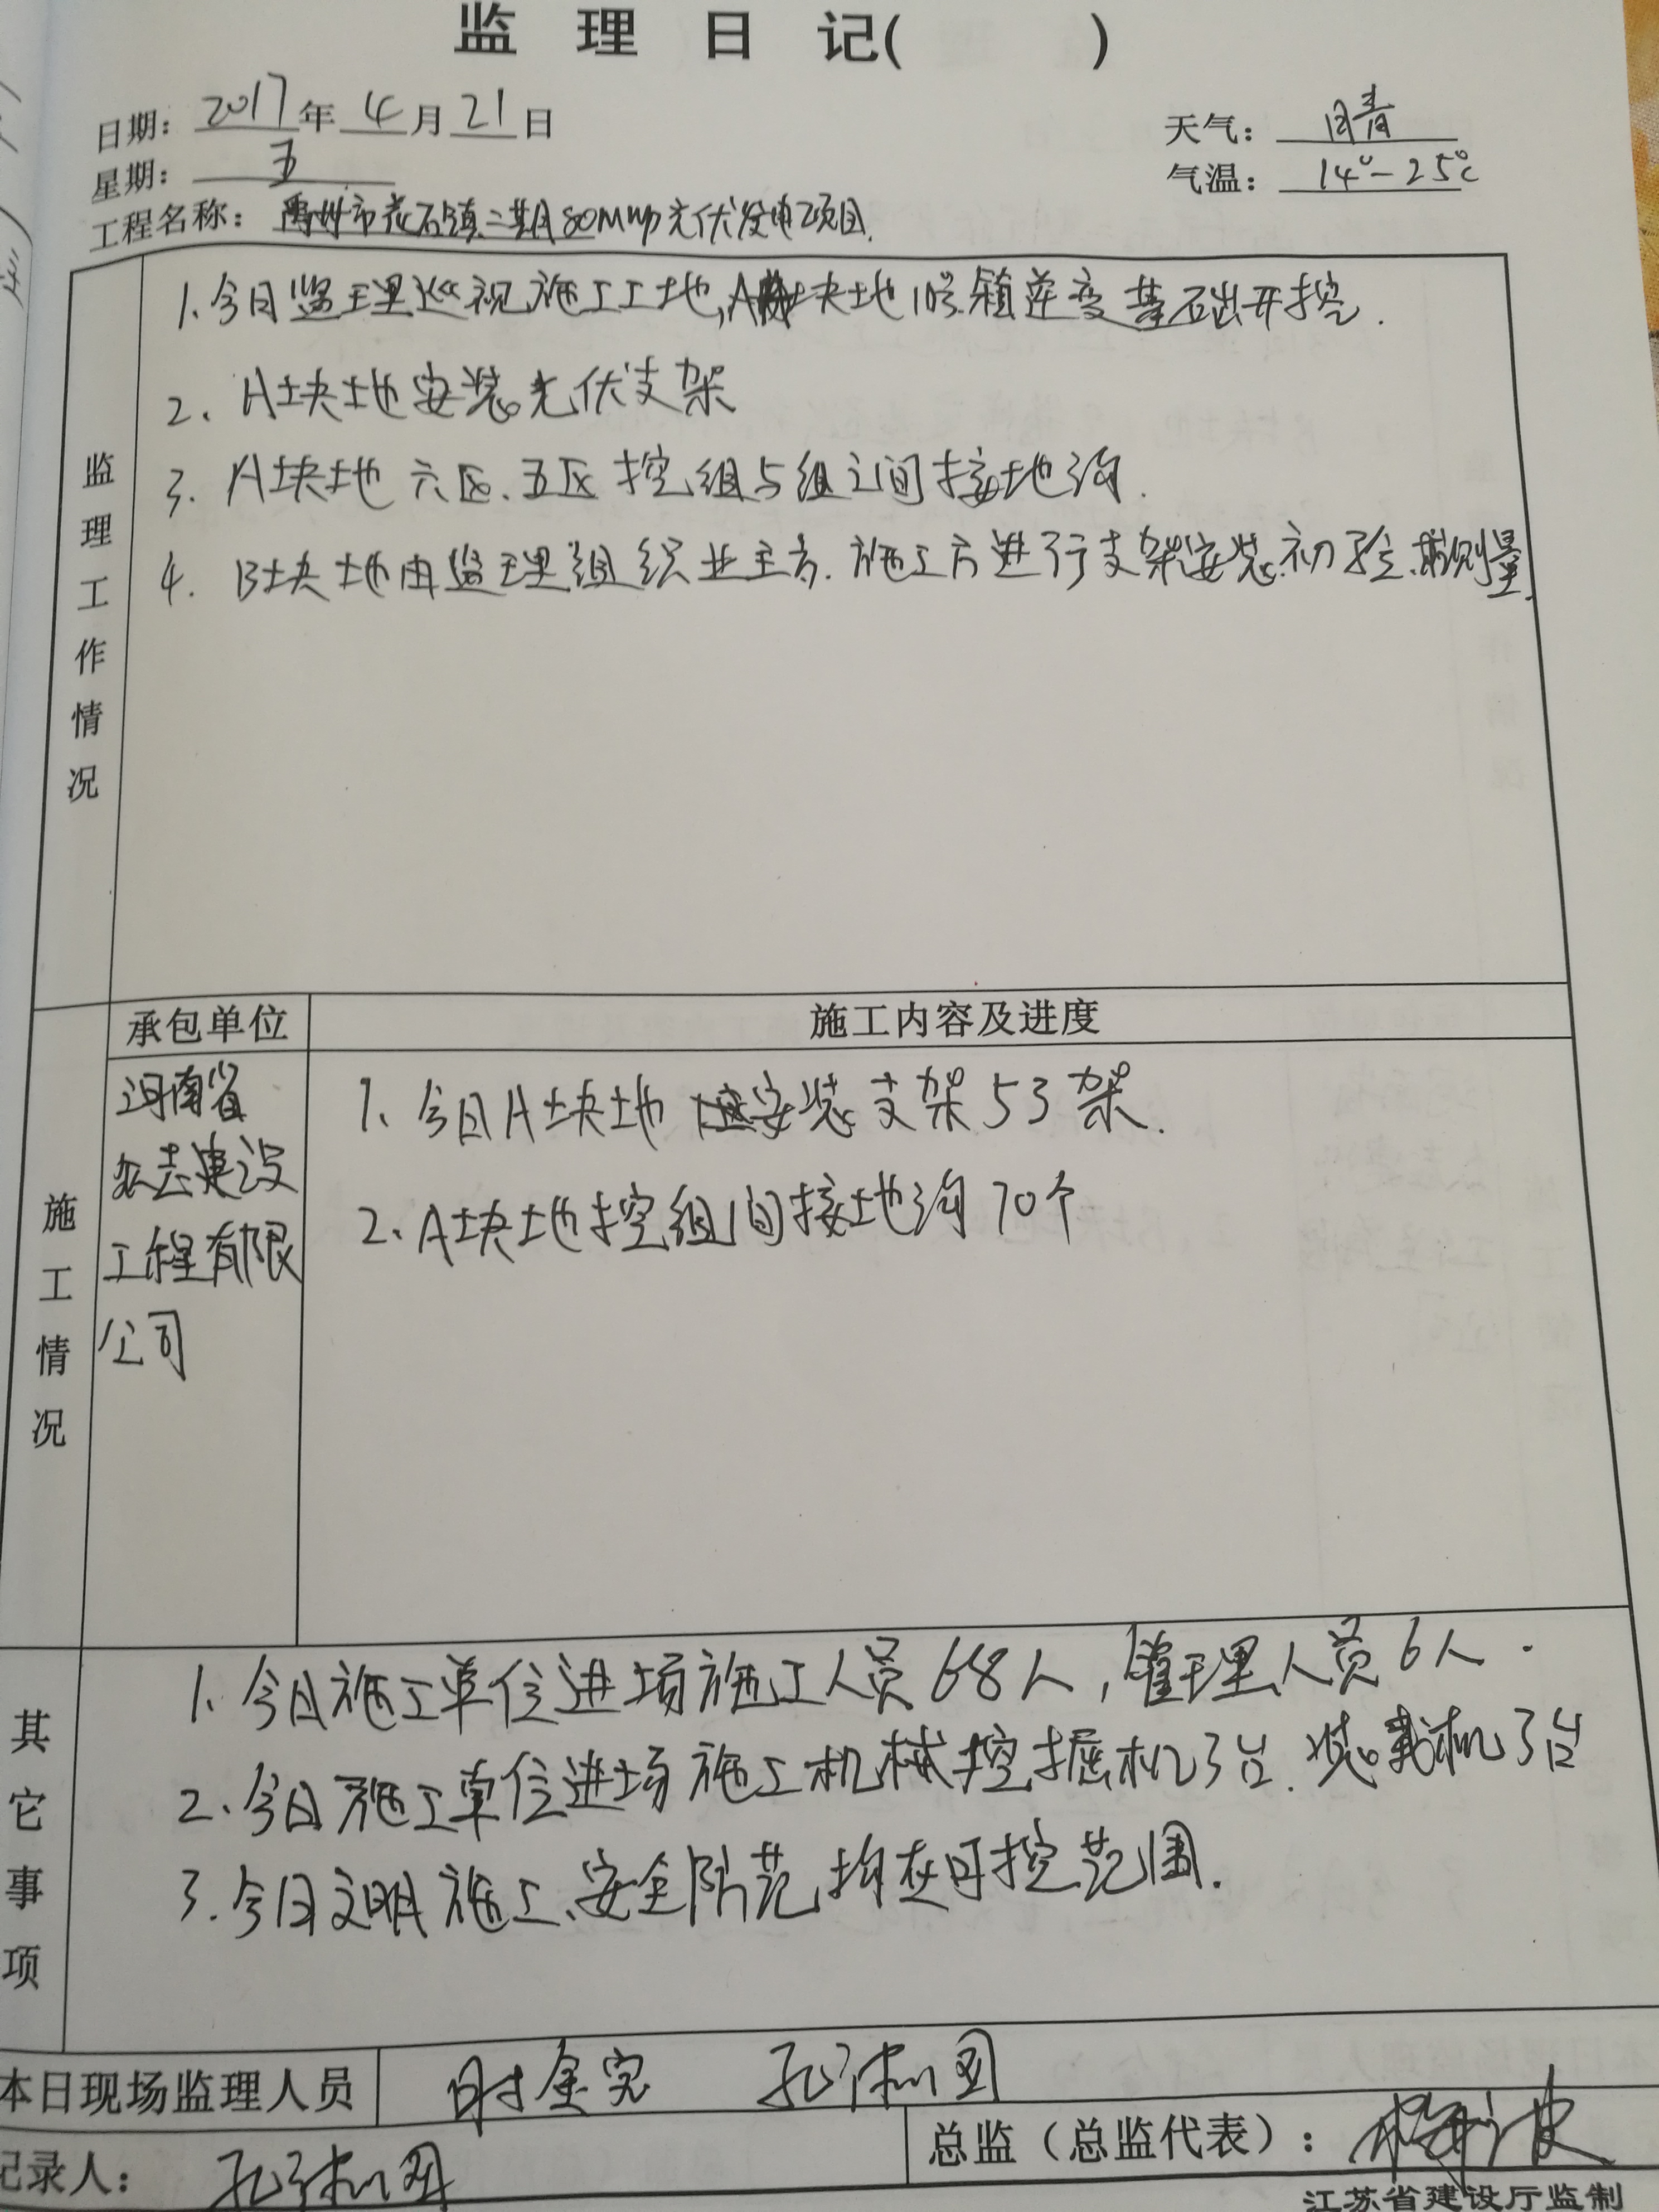 监理日记(　　)
日期：2017年4月21日
天气：晴
星期：五
气温：14°-25℃
工程名称：禹州市花石镇二期80MWp光伏发电项目.
监理工作情况
1.今日监理巡视施工工地,A块地10号箱逆变基础开挖.
2、A块地安装光伏支架
3. A块地六区、五区挖组与组之间接地沟.
4. B块地由监理组织业主方.施工方进行支架安装初验.测量.
承包单位
施工内容及进度
施工情况
河南省
建设
工程有限
公司
1、今日A块地安装支架53架.
2、A块地挖组间接地沟70个
其它事项
1、今日施工单位进场施工人员68人,管理人员6人.
2、今日施工单位进场施工机械挖掘机3台.装载机3台
3.今日文明施工、安全防范,均在可控范围.
本日现场监理人员
记录人：
总监（总监代表）：
江苏省建设厅监制